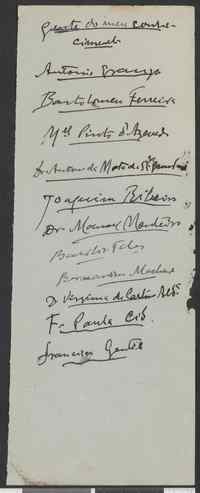 Gente do meu conhe-
cimento
Antonio
Bartholomeu Ferreira
Mel Pinto d'Azevedo
Dr Antonio da Mota de
Joaquim Ribeiro
Dr. Manuel Monteiro
Basilio Teles
Bernardino Machado
D. Virginia de Castro
F. Paula Cid.
Francisco Gentil